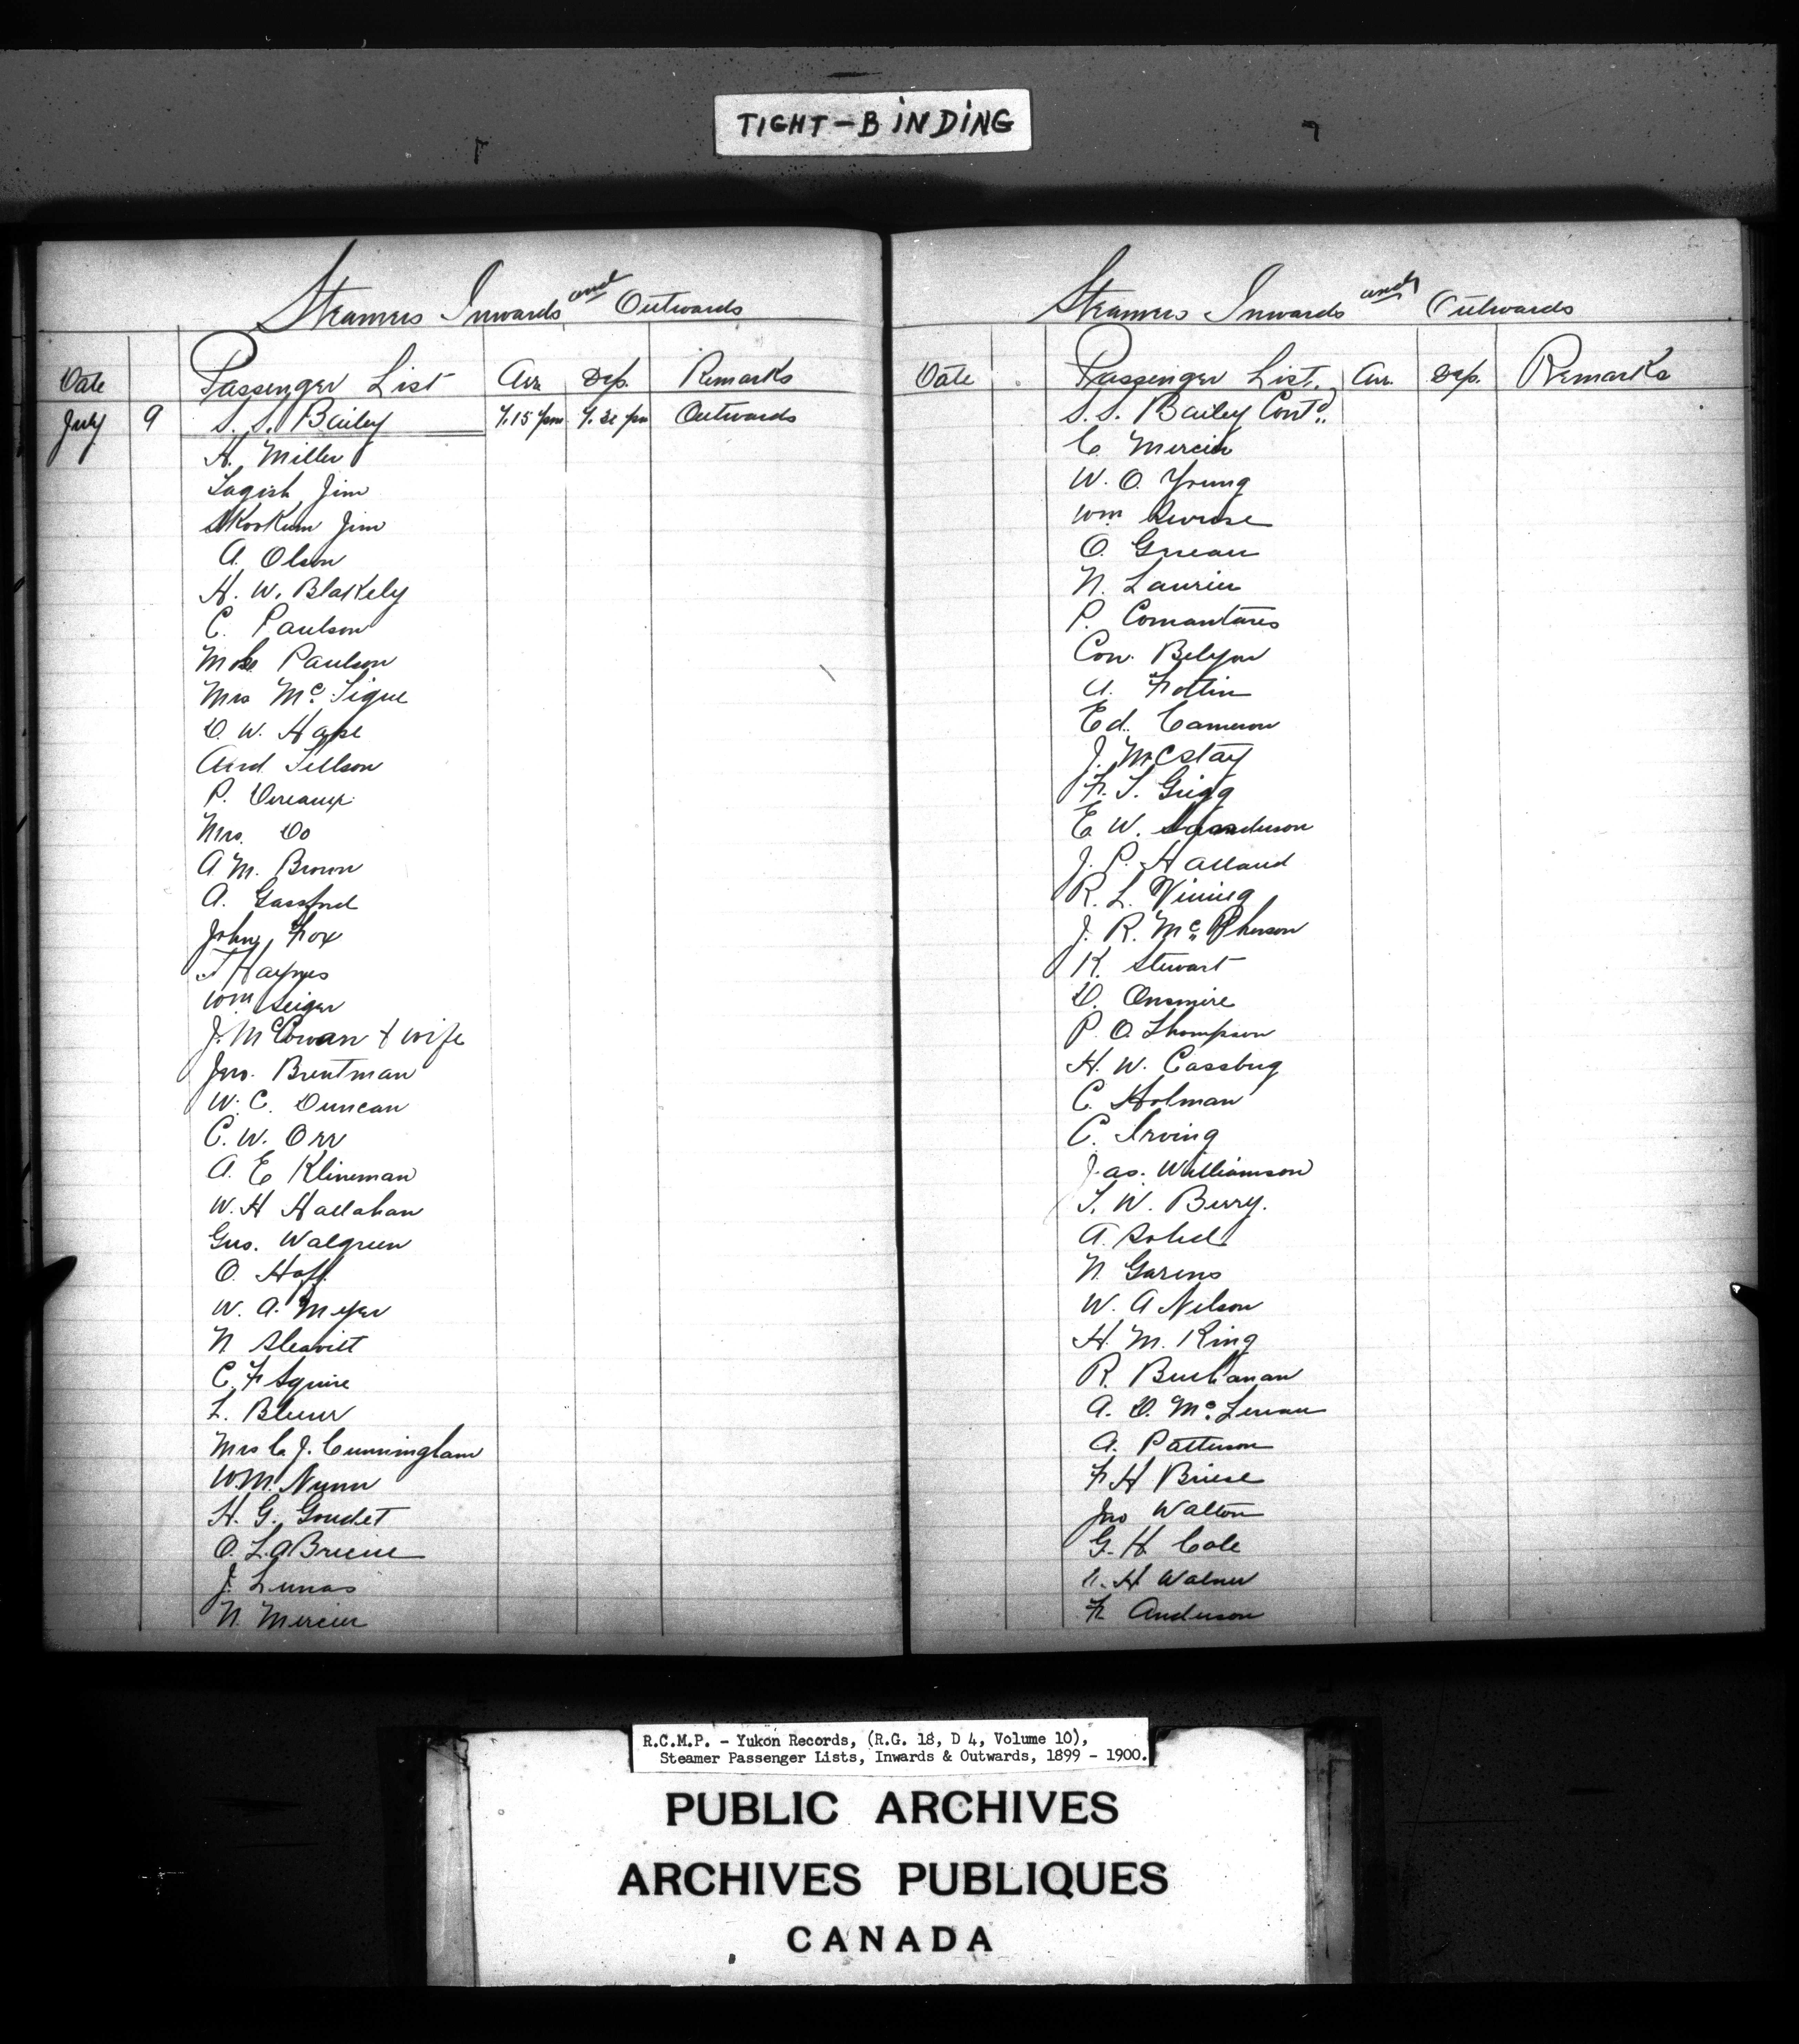 TIGHT-BINDING
Steamers Inwards and Outwards
Date Passenger List Arr. Dep. Remarks
July 9 S. S. Bailey 7.15 pm 7.30 pm Outwards
H. Miller
Tagish Jim
Skookum Jim
A. Olson
H. W. Blakely
C. Paulson
Mrs Paulson
Mrs Mc Tigue
D. W. Hape
Aird Tellson
P. Vereaux
Mrs. Do
A M. Brown
A. Gassford
John Fox
T Haynes
Wm Seiger
J. McCowan & wife
Jno. Brentman
W. C. Duncan
C. W. Orr
A. E Klineman
W. H Hallahan
Gus. Walgreen
O. Hoff
W. A. Meyer
N Sleavitt
C. F Squire
L. Bleuer
Mrs C. J. Cunningham
W.M. Nunn
H. G. Goudet
O. LaBriene
J. Lunas
N. Mercier
Steamers Inwards and Outwards
Date Passenger List. Arr. Dep. Remarks
S. S. Bailey Cont'd.
C. Mercier
W. O. Young
Wm
O. Greau
N. Laurier
P. Comantares
Con. Belyou
A. Fottin
Ed. Cameron
J. McStay
F. S. Grigg
E. W. Sanderson
J. P. Halland
R. L. Vining
J. R. Mc Pherson
K. Stewart
D. Onsmire
P. O. Thompson
H. W. Cassburg
C. Holman
C. Irving
Jas. Williamson
T. W. Berry.
A. Sohel
N. Garens
W. A Nelson
H. M. King
R. Buchanan
A. D. Mc Lenan
A. Patterson
F H Briese
Jno Walton
G. H. Cole
H Walner
F. Anderson
R.C.M.P. - Yukon Records, (R.G. 18, D 4, Volume 10),
Steamer Passenger Lists, Inwards & Outwards, 1899 - 1900.
PUBLIC ARCHIVES
ARCHIVES PUBLIQUES
CANADA